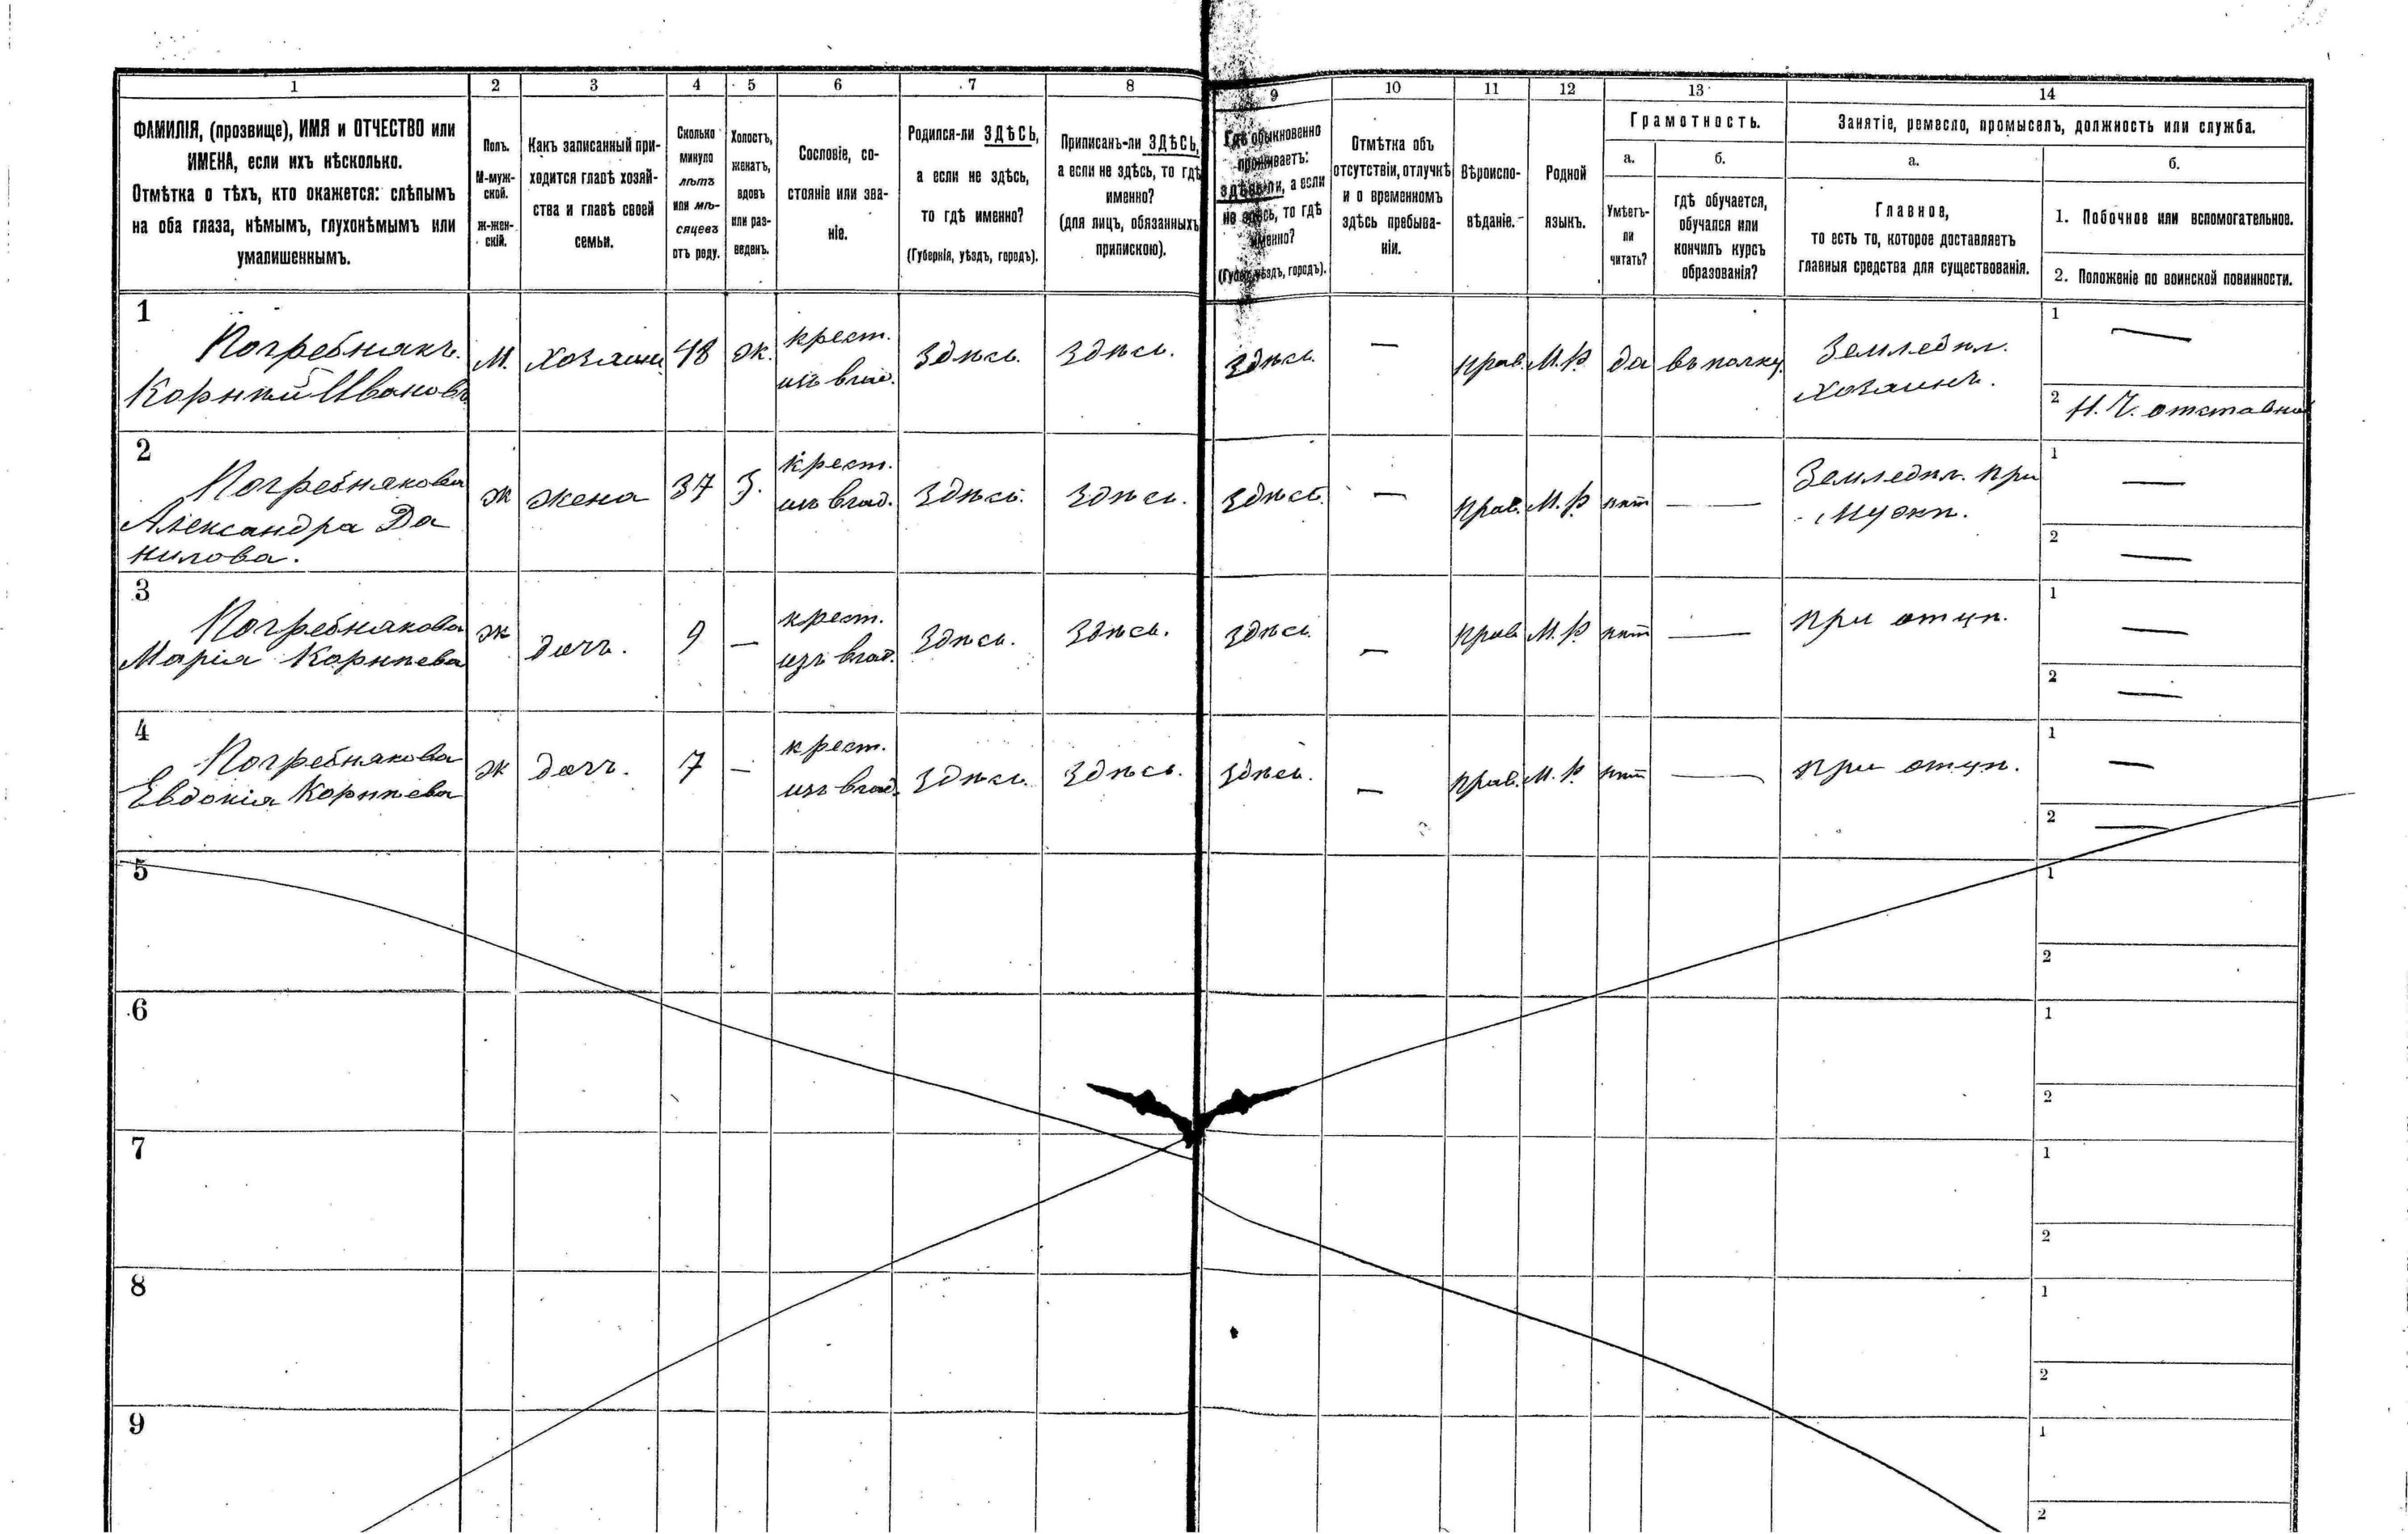 1 2 3 4 5 6 7 8 9 10 11 12 13 14
ФАМИЛІЯ, (прозвище), ИМЯ и ОТЧЕСТВО или
ИМЕНА, если ихъ нѣсколько.
Отмѣтка о тѣхъ, кто окажется: слѣпымъ
на оба глаза, нѣмымъ, глухонѣмымъ или
умалишеннымъ.
Полъ.
М-муж-
ской.
Ж-жен-
скій.
Какъ записанный при-
ходится главѣ хозяй-
ства и главѣ своей
семьи.
Сколько
минуло
лѣтъ
или мѣ-
сяцевъ
отъ роду.
Холостъ,
женатъ,
вдовъ
или раз-
веденъ.
Сословіе, со-
стояніе или зва-
ніе.
Родился-ли ЗДѢСЬ,
а если не здѣсь,
то гдѣ именно?
(Губернія, уѣздъ, городъ).
Приписанъ-ли ЗДѢСЬ,
а если не здѣсь, то гдѣ
именно?
(для лицъ, обязанныхъ
припискою).
Гдѣ обыкновенно
проживаетъ:
здѣсь-ли, а если
не здѣсь, то гдѣ
именно?
(Губер., уѣздъ, городъ).
Отмѣтка объ
отсутствіи, отлучкѣ
и о временномъ
здѣсь пребыва-
ніи.
Вѣроиспо-
вѣданіе.
Родной
языкъ.
Грамотность.
а.
Умѣетъ-
ли
читать?
б.
гдѣ обучается,
обучался или
кончилъ курсъ
образованія?
Занятіе, ремесло, промыселъ, должность или служба.
а.
Главное,
то есть то, которое доставляетъ
главныя средства для существованія.
б.
1. Побочное или вспомогательное.
2. Положеніе по воинской повинности.
1
Погребнякъ.
Корнѣй Ивановъ
М.
хозяинъ
48
ж.
крест.
изъ влад.
Здѣсь.
Здѣсь.
Здѣсь
—
Прав.
М.Р.
да
въ полку.
Земледѣл.
хозяинъ.
1 —
2 Н. Ч. отставной
2
Погребнякова
Александра Да
нилова.
ж
жена
37
З.
крест.
изъ влад.
Здѣсь.
Здѣсь.
Здѣсь.
—
Прав.
М.Р.
нѣт
—
Земледѣл. при
мужѣ.
1 —
2 —
3
Погребнякова
Марія Корнѣева
ж
дочь.
9
—
крест.
изъ влад.
Здѣсь.
Здѣсь.
Здѣсь.
—
Прав.
М.Р.
нѣт
—
при отцѣ.
1 —
2 —
4
Погребнякова
Евдокія Корнѣева
ж
дочь.
7
—
крест.
изъ влад.
Здѣсь.
Здѣсь.
Здѣсь.
—
Прав.
М.Р.
нѣт
—
при отцѣ.
1 —
2 —
5
1
2
6
1
2
7
1
2
8
1
2
9
1
2